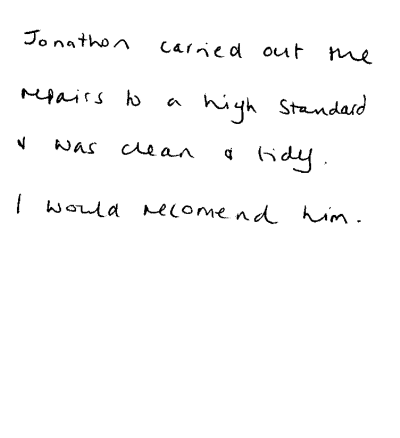 Jonathon carried out the
repairs to a high standard
& was clean & tidy.
I would recomend him.